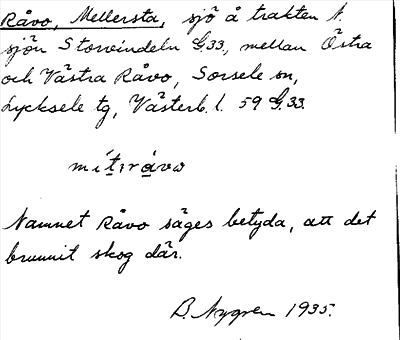 Råvo, Mellersta, sjö å trakten N.
sjön Storvindeln G.33, mellan Östra
och Västra Råvo, Sorsele sn,
Lycksele tg, Västerb. l. 59 G.33.
Namnet Råvo säges betyda, att det
brunnit skog där.
B. Nygren 1935.